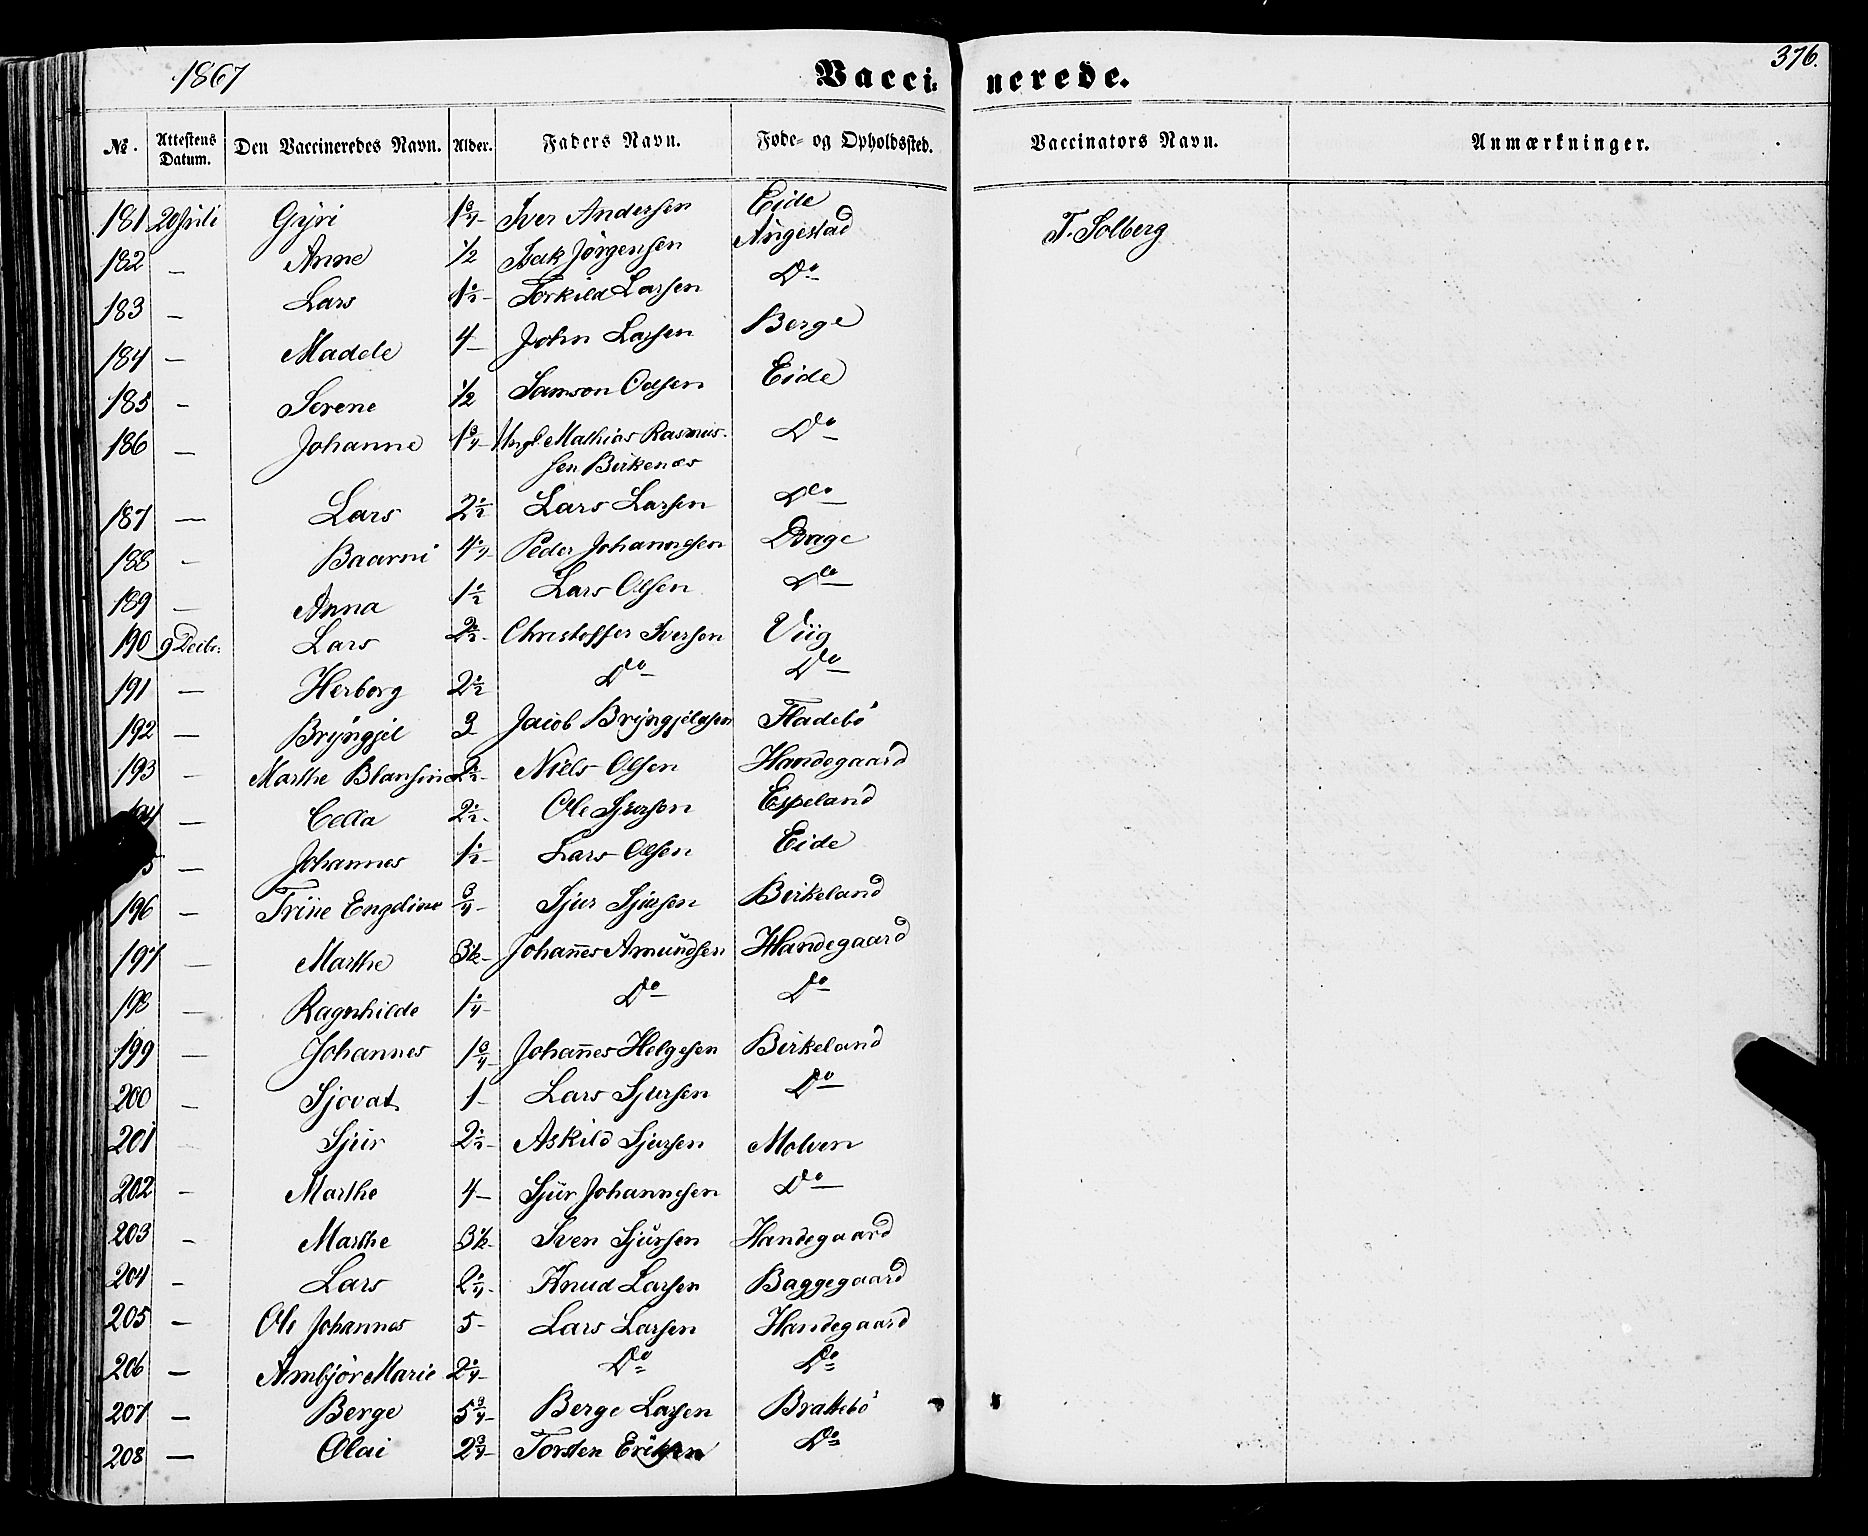 1867 Vaccinerede. 376.
№. Attestens Datum. Den Vaccineredes Navn. Alder. Faders Navn. Føde- og Opholdssted. Vaccinators Navn. Anmærkninger.
181 20 Juli Gyri 1 3/4 Iver Andersen Eide T. Solberg
182 — Anne 1/2 Isak Jørgensen Augestad
183 — Lars 1 1/2 Torkild Larsen Do
184 — Madele 4 John Larsen Berge
185 — Serene 1/2 Samson Olsen Eide
186 — Johanne 1 3/4 Mathias Rasmus-
sen Birkenæs Do
187 — Lars 2 1/2 Lars Larsen Do
188 — Baarni 4 1/4 Peder Johannesen Drage
189 — Anna 1 1/2 Lars Olsen Do
190 9 Decbr: Lars Christoffer Iversen Viig
191 — Herborg 2 1/2 Do Do
192 — Bryngjel 3 Jacob Bryngjelsen Fladebö
193 — Marthe Niels Olsen Handegaard
194 — Cella 2 1/2 Ole Sjursen Espeland
5 — Johannes 1 1/2 Lars Olsen Eide
196 — Trine Engeline 3/4 Sjur Sjursen Birkeland
197 — Marthe 3 1/2 Johannes Amundsen Handegaard
198 — Ragnhilde 1 1/4 Do Do
199 — Johannes 1 3/4 Johannes Helgesen Birkeland
200 — Sjovat 1 Lars Sjursen Do
201 — Sjur 2 1/2 Askild Sjursen Molven
202 — Marthe 4 Sjur Johannesen Do
203 — Marthe 3 1/2 Sven Sjursen Handegaard
204 — Lars 2 1/4 Knud Larsen Baggegaard
205 — Ole Johannes 5 Lars Larsen Handegaard
206 — Ambjør Marie 2 1/4 Do Do
207 — Berge 5 3/4 Berge Larsen Brattebö
208 — Olai 2 3/4 Torsten Eriksen Do